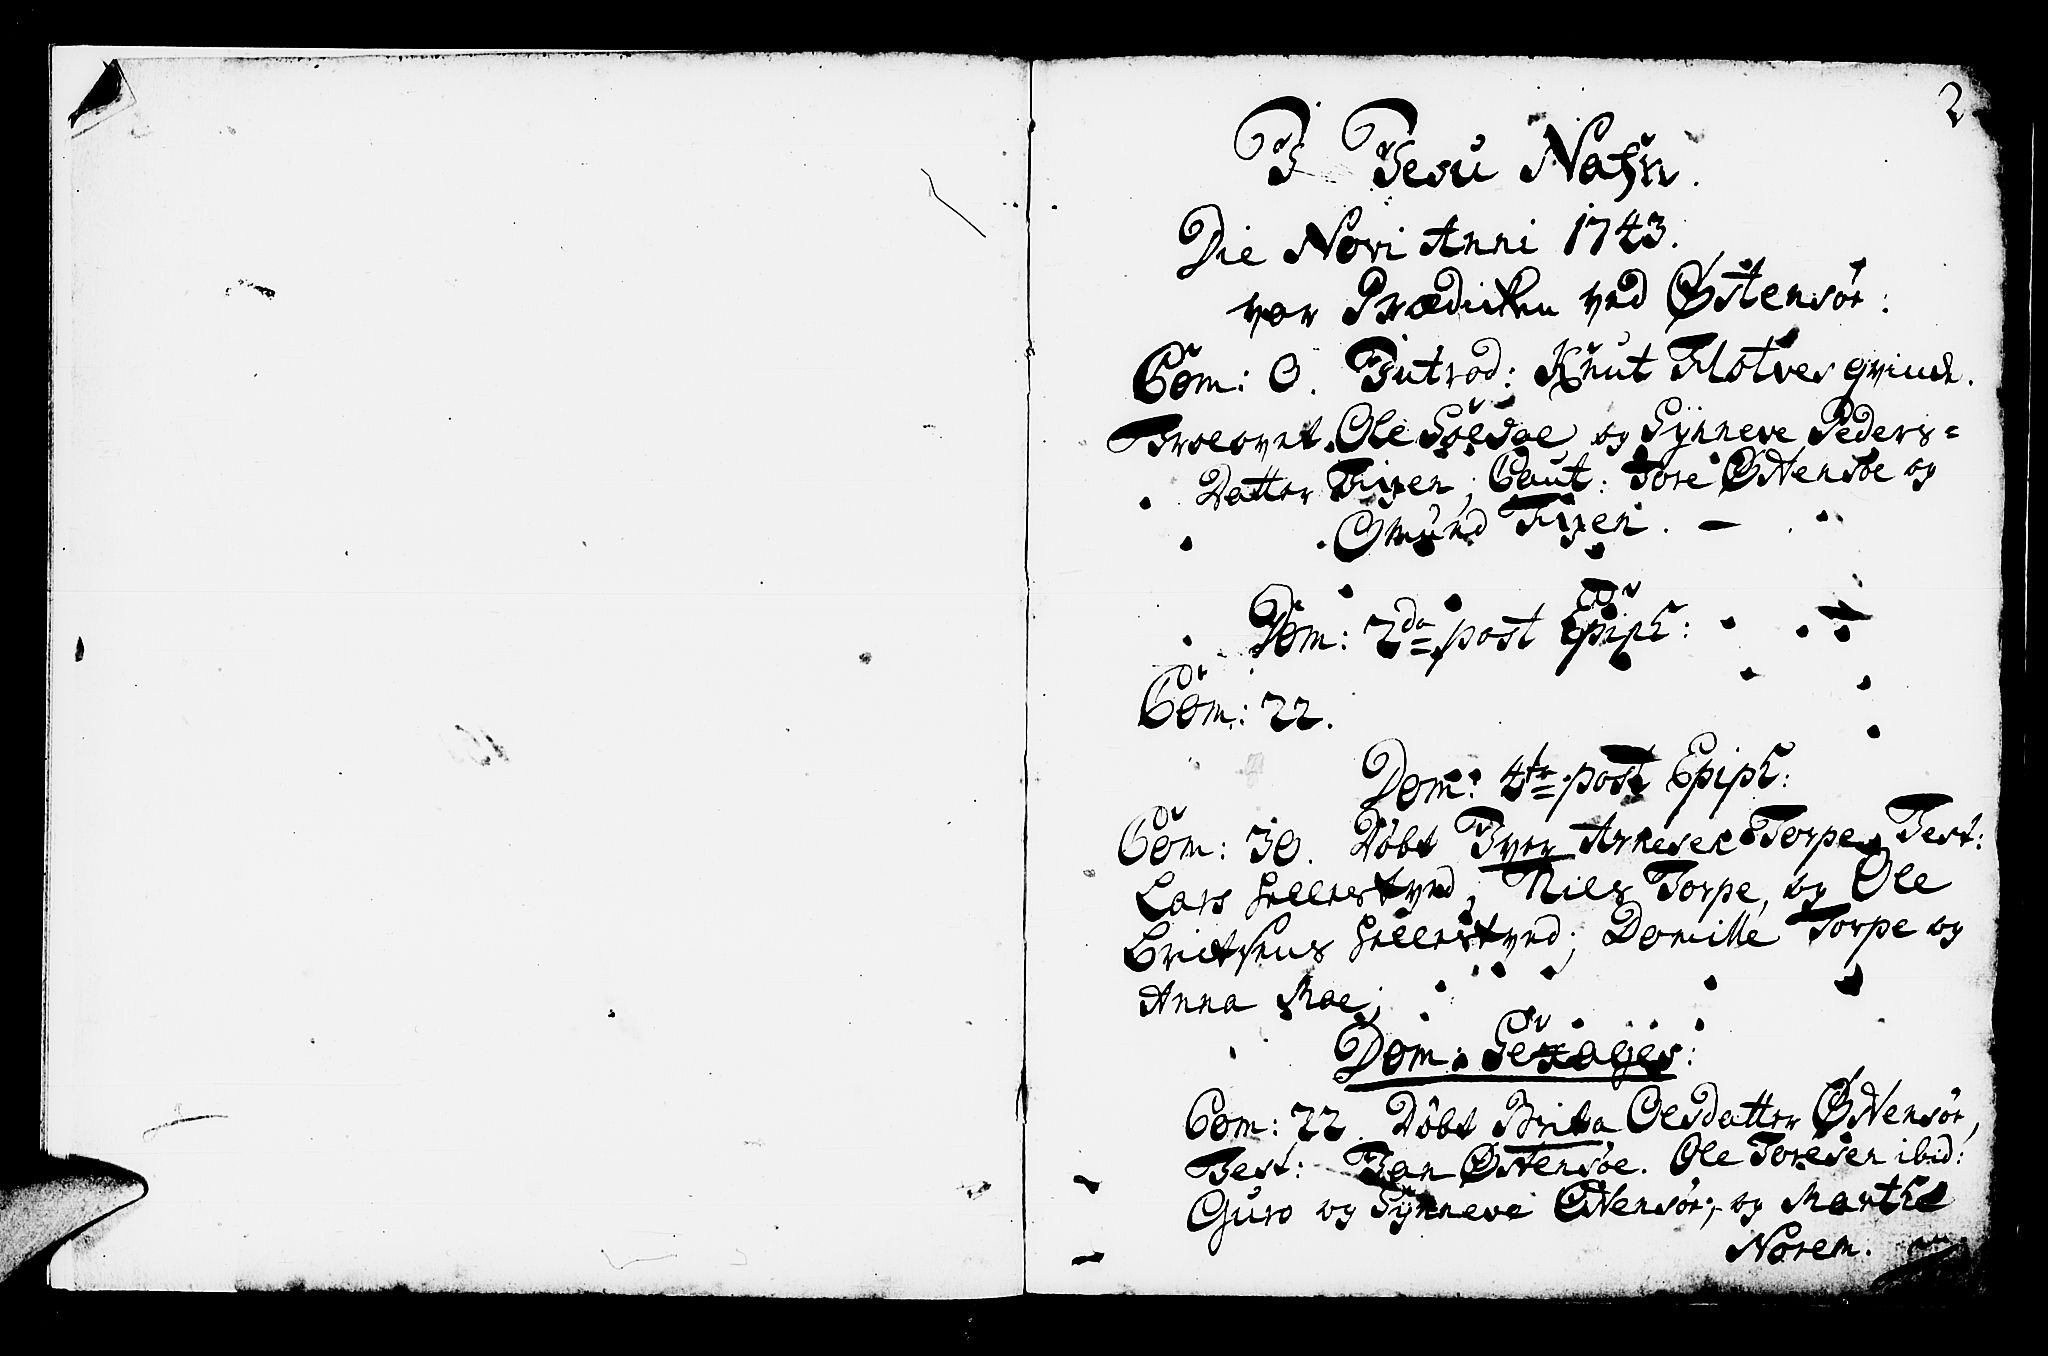 2
I Jesu Nafn.
Die Novi Anni 1743.
var Prædicken ved Østensøe:
Com: 0. Introd: Knut Flotves qvinde.
Troelovet. Ole Soldal og Synneve Peders=
Datter Fixen, Caut: Tore Østensøe og
Omund Fixen. —
Dom: 2da post Epiph:
Com: 22.
Dom: 4ta post Epiph:
Com: 30. Döbt Iver Arnesen Torpe, Test:
Lars Hellestved, Niels Torpe, og Ole
Erichsens Hellestved; Domille Torpe og
Anna Moe;
Dom: Sexages:
Com: 22. Döbt Brita Olesdatter Østensøe,
Test: Jan Østensøe. Ole Toresen ibid:
Guro og Synneve Østensøe; og Marthe
Norem.